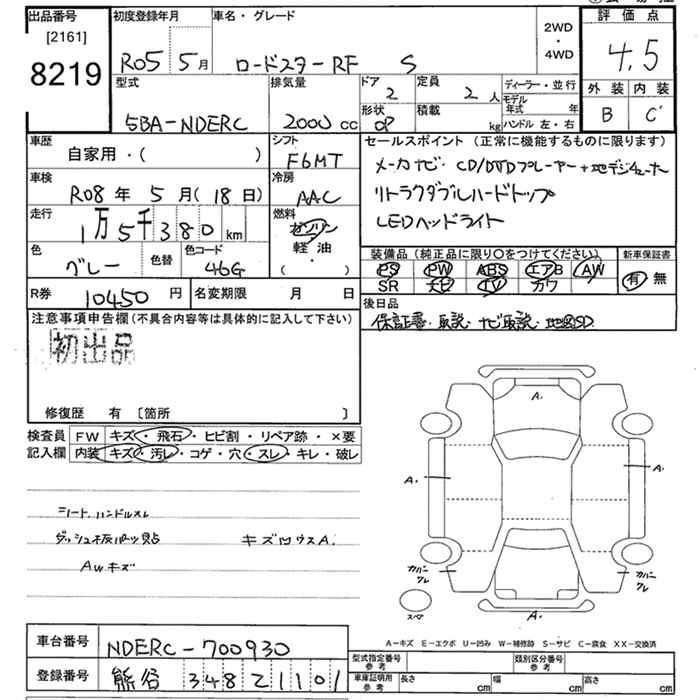 出品番号
[2161]
8219
初度登録年月
R05 5月
車名・グレード
ロードスターRF S
2WD
・
4WD
評価点
4.5
外装 内装
B C
型式
5BA-NDERC
排気量
2000 cc
ドア
2
形状
OP
定員
2 人
積載
kg
ディーラー・並行
モデル年式 年
ハンドル 左・右
車歴
自家用・( )
シフト
F6MT
車検
R08年 5月(18日)
冷房
AAC
走行
1万5千380km
燃料
ガソリン
軽油
( )
色
グレー
色替
色コード
46G
R券
10450円
名変期限 月 日
セールスポイント(正常に機能するものに限ります)
メーカナビ・CD/DVDプレーヤー+地デジチューナー
リトラクタブルハードトップ
LEDヘッドライト
装備品(純正品に限り○をつけてください)
PS PW ABS エアB AW
SR ナビ TV カワ
新車保証書
有 無
後日品
保証書・取説・ナビ取説・地図SD
注意事項申告欄(不具合内容等は具体的に記入して下さい)
初出品
修復歴 有 [箇所 ]
検査員
記入欄
FW キズ・飛石・ヒビ割・リペア跡・×要
内装 キズ・汚レ・コゲ・穴・スレ・キレ・破レ
シート、ハンドルスレ
ダッシュ板
キズ凹ウスA.
AWキズ
A.
A.
A.
カバー
グレ
カバー
グレ
スペア
A.
A-キズ E-エクボ U-凹み W-補修跡 S-サビ C-腐食 XX-交換済
車台番号
NDERC-700930
登録番号
熊谷 348
型式指定番号
参考
類別区分番号
参考
車庫証明用
参考
長さ cm
幅 cm
高さ cm